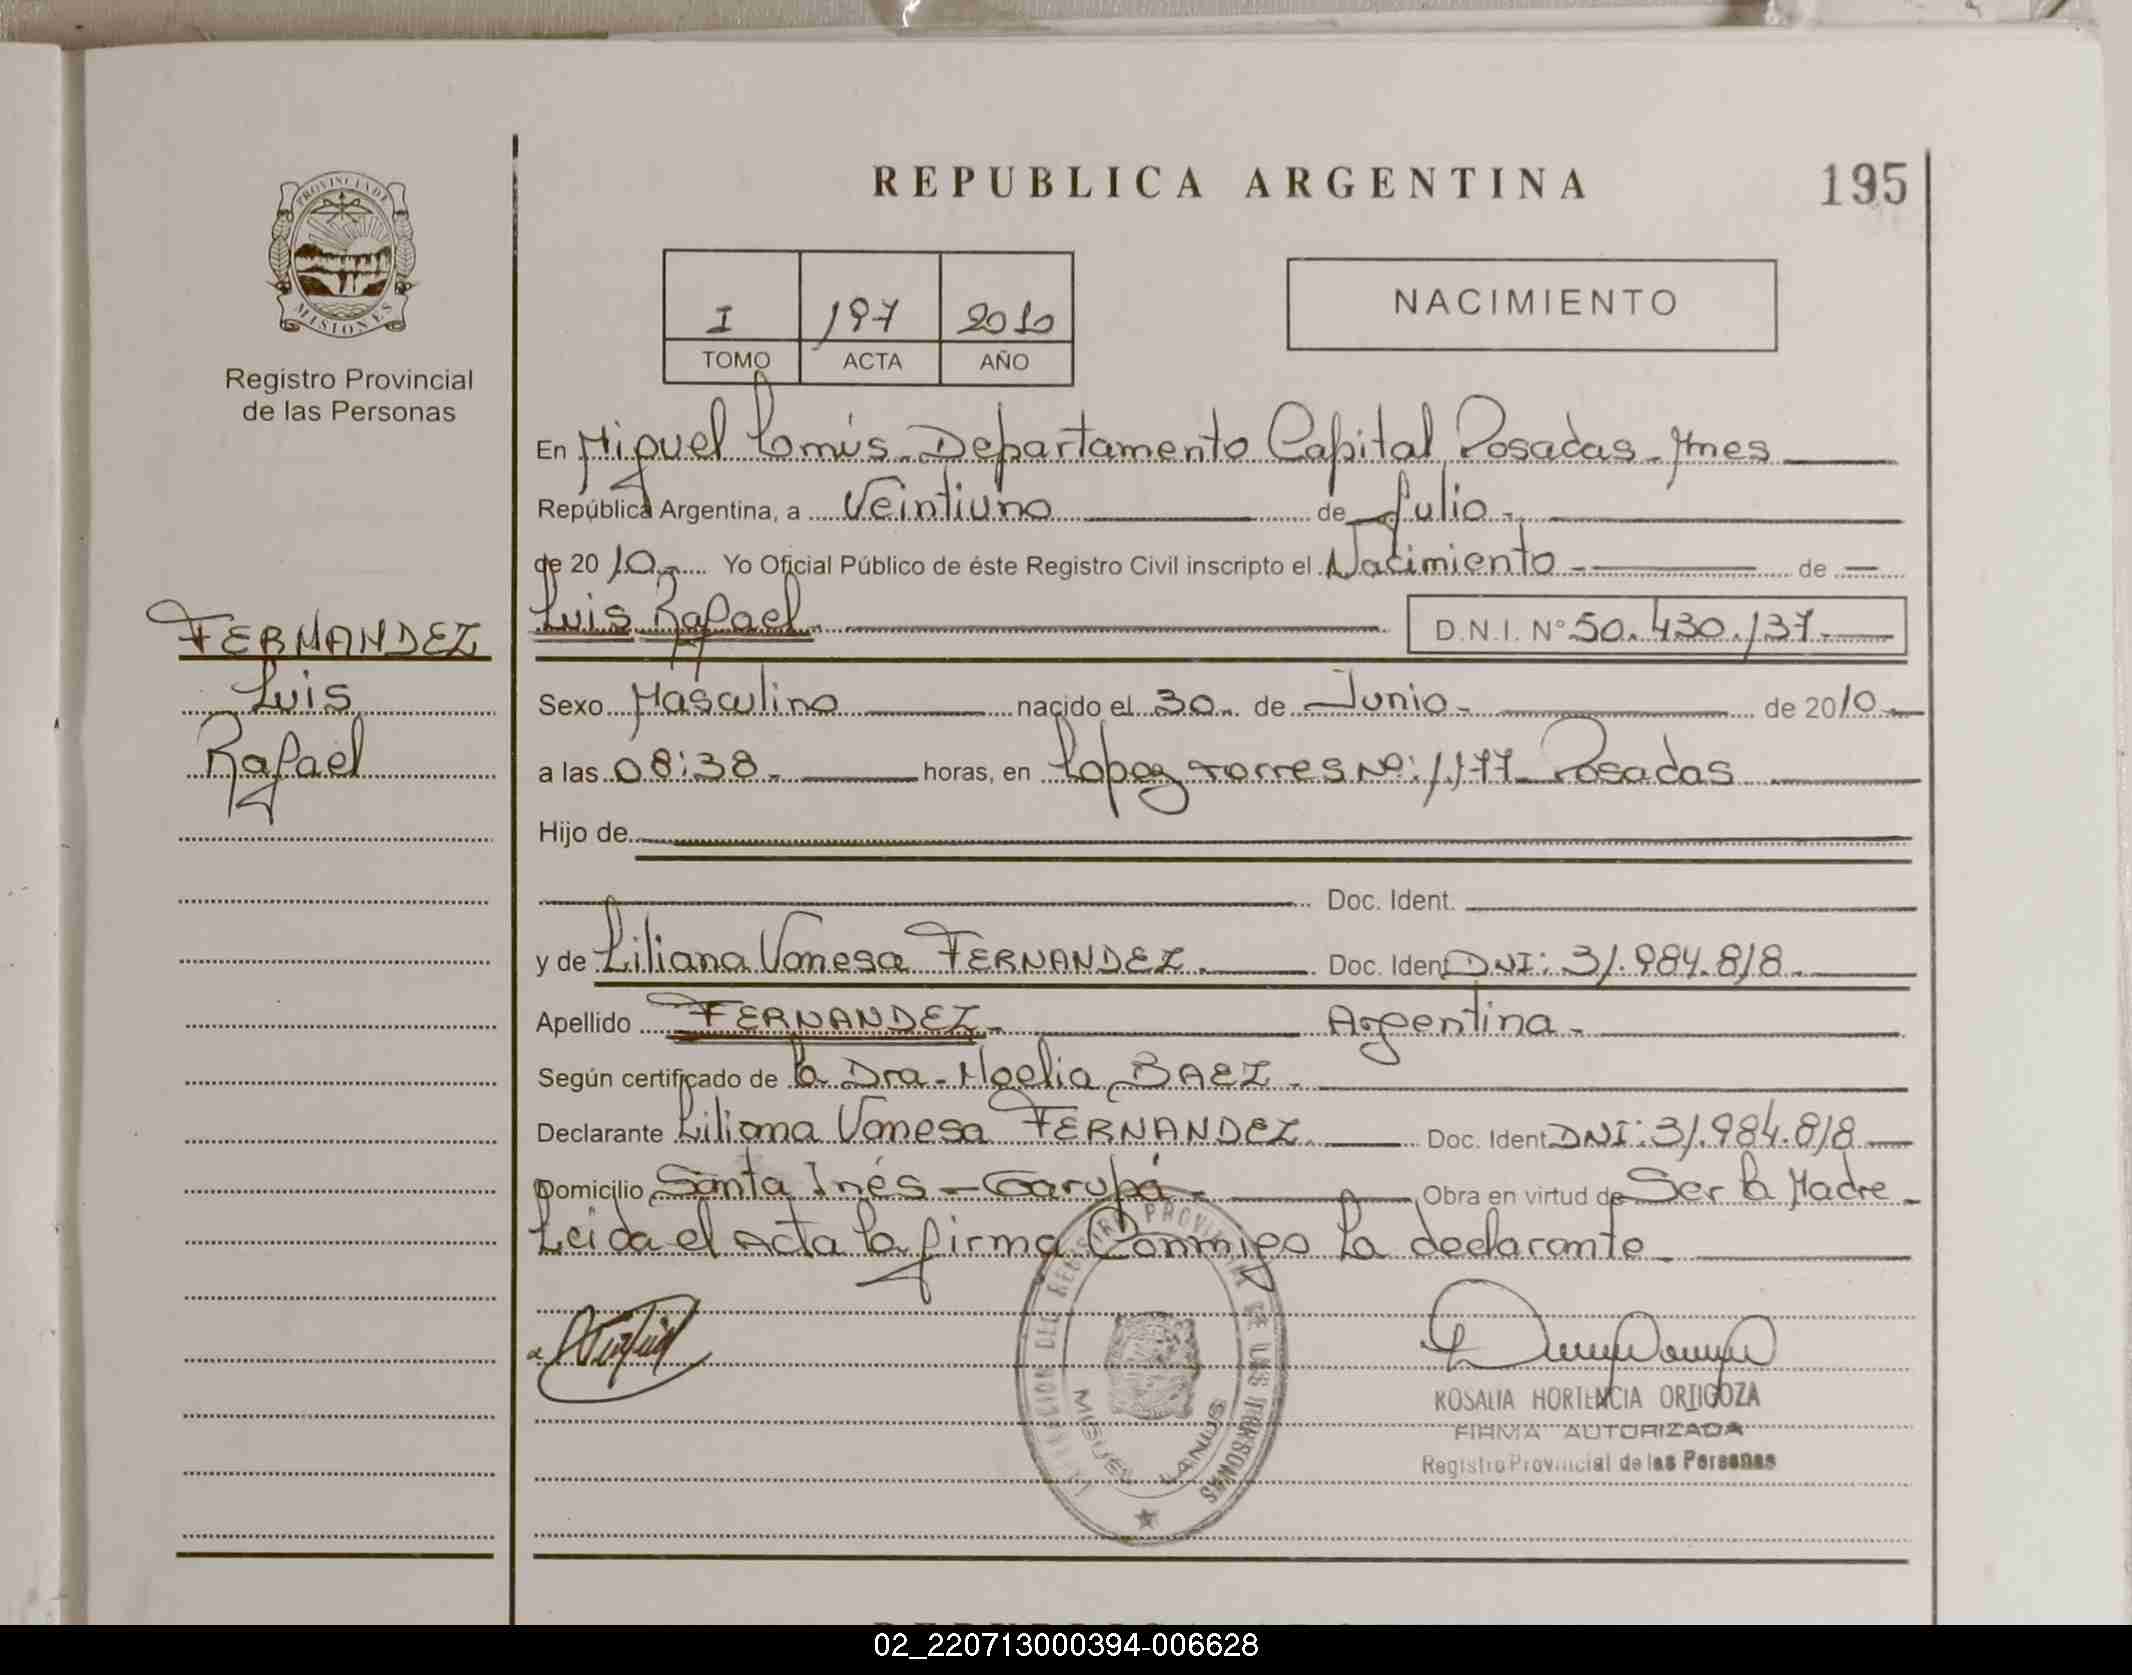 REPUBLICA ARGENTINA
195
PROVINCIA DE
MISIONES
Registro Provincial
de las Personas
I 197 2010
TOMO ACTA AÑO
NACIMIENTO
En Miguel Lanús Departamento Capital Posadas Mnes
República Argentina, a Veintiuno de Julio
de 2010 Yo Oficial Público de éste Registro Civil inscripto el Nacimiento de
Luis Rafael D.N.I. Nº 50.430.137
FERNANDEZ
Luis
Rafael
Sexo Masculino nacido el 30 de Junio de 2010
a las 08:38 horas, en Lopez torres Nº: 1177 Posadas
Hijo de
Doc. Ident.
y de Liliana Vanesa FERNANDEZ Doc. Ident DNI: 31.984.818
Apellido FERNANDEZ Argentina
Según certificado de la Dra. Noelia BAEZ
Declarante Liliana Vanesa FERNANDEZ Doc. Ident DNI: 31.984.818
Domicilio Santa Inés - Garupá Obra en virtud de Ser la Madre
Leida el Acta la firma Conmigo la declarante
REGISTRO PROVINCIAL DE LAS PERSONAS
MIGUEL LANUS
ROSALIA HORTENCIA ORTIGOZA
FIRMA AUTORIZADA
Registro Provincial de las Personas
02_220713000394-006628